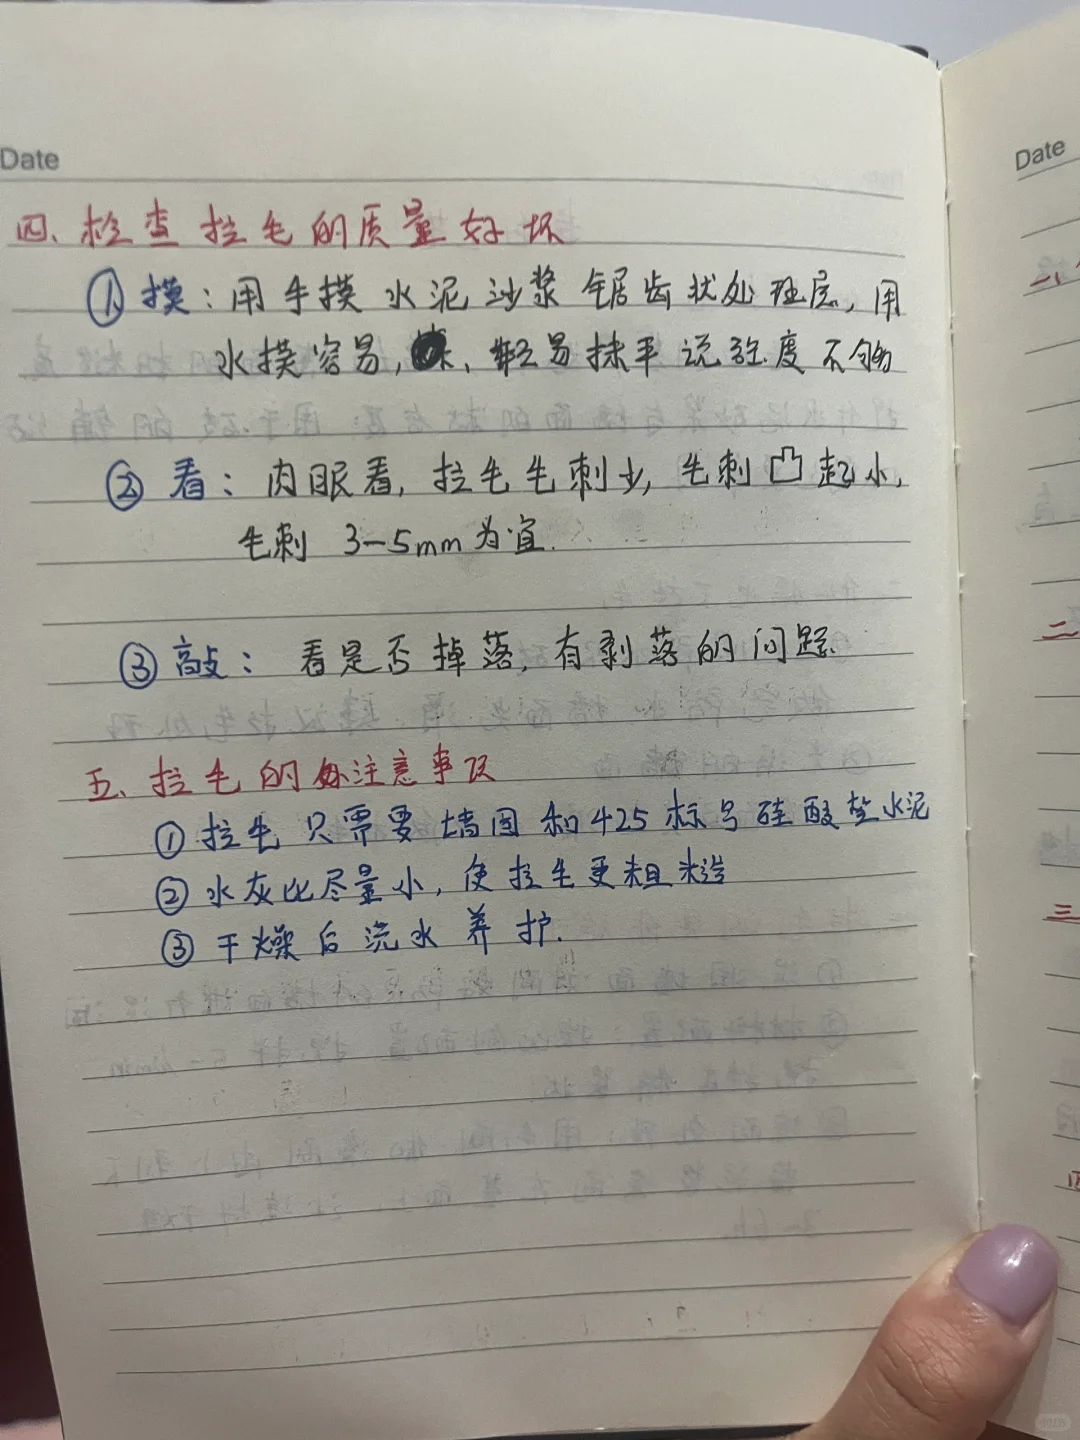 Date
四、检查拉毛的质量好坏
①摸：用手摸水泥沙浆锯齿状处理层，用
水摸容易，、轻易抹平说强度不够
②看：肉眼看，拉毛毛刺少，毛刺凸起小，
毛刺 3-5mm为宜.
③敲：看是否掉落，有剥落的问题.
五、拉毛的注意事项
①拉毛只需要墙固和425标号硅酸盐水泥
②水灰比尽量小，使拉毛更粗糙
③干燥后浇水养护.
Date
一、
二
三
四